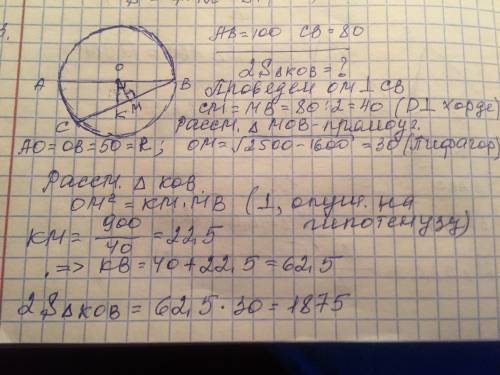 AB=100 CB=80
2S△KOB=?
Проведём OM⊥CB
CM=MB=80:2=40 (D⊥хорде)
Рассм. △MOB-прямоуг.
AO=OB=50=R; OM=√2500-1600=30 (Пифагор)
Рассм. △KOB.
OM²=KM·MB (⊥, опущ. на гипотенузу)
KM=900/40=22,5
.⇒ KB=40+22,5=62,5
2S△KOB=62,5·30=1875
O
A
B
K
M
C